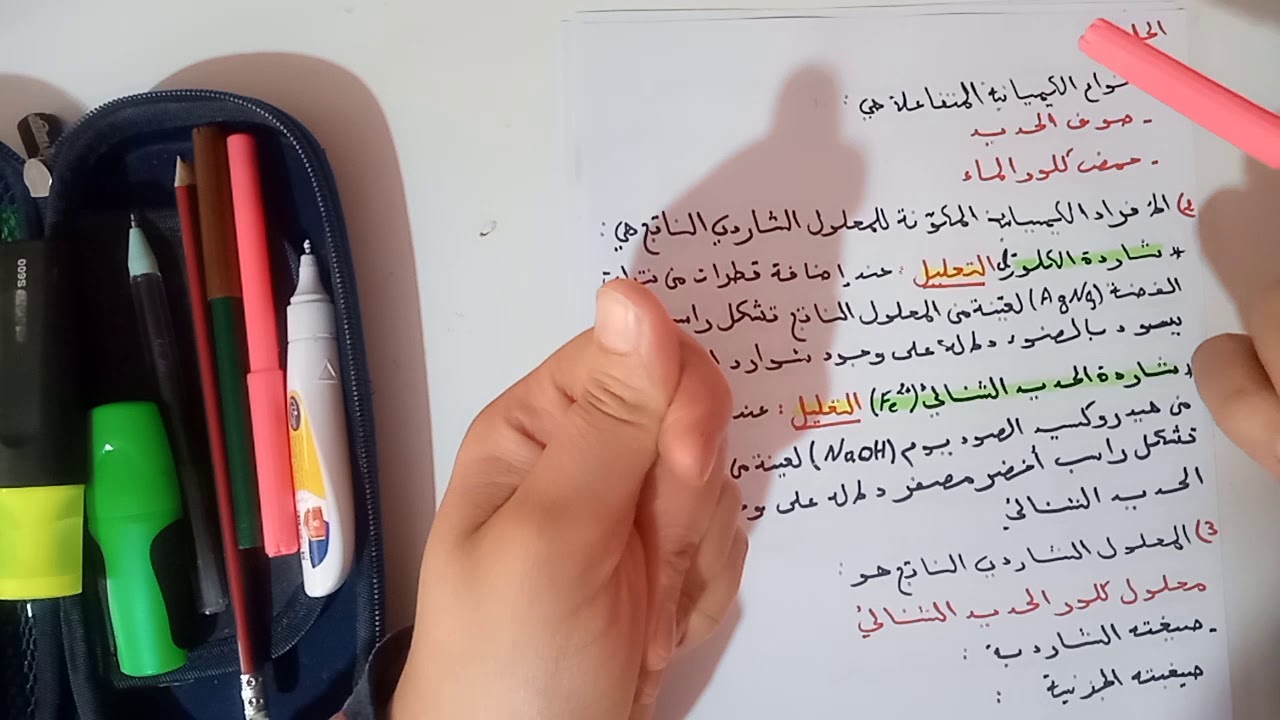 الحل
الكيميائية المتفاعلة هي :
- صوف الحديد
- حمض كلور الماء
2) الأفراد الكيميائية المكونة للمحلول الشاردي الناتج هي :
* شاردة الكلور التعليل : عند إضافة قطرات من نترات
الفضة (AgNO3) لعينة من المحلول الناتج تشكل
يسود بالضوء دلالة على وجود شوارد
* شاردة الحديد الثنائي (Fe2+) التعليل : عند
من هيدروكسيد الصوديوم (NaOH) لعينة من
تشكل راسب أخضر مصفر دلالة على
الحديد الثنائي
3) المحلول الشاردي الناتج هو :
محلول كلور الحديد الثنائي
- صيغته الشاردية :
صيغته الجزئية :
S600